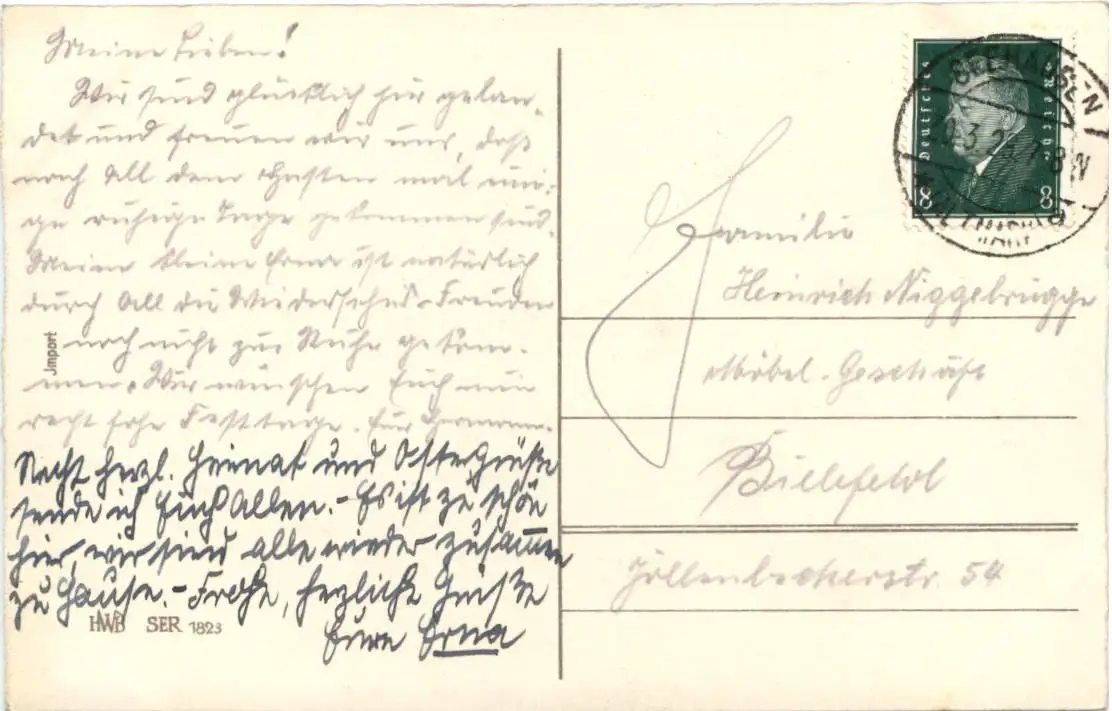 Meine Lieben!
Wir sind glücklich hier gelan-
det und freuen wir uns, daß
nach all dem Hasten mal eini-
ge ruhige Tage gekommen sind.
Meine kleine Erna ist natürlich
durch all die Wiedersehens-Freuden
noch nicht zur Ruhe gekom-
men. Wir wünschen Euch nun
recht frohe Festtage. Eur Hermann.
Recht herzl. Heimat und Ostergrüße
sende ich Euch Allen.- Es ist zu schön
hier, wir sind alle wieder zusammen
zu Hause.- Frohe, herzliche Grüße
Eure Erna
Jmport
HWB SER 1823
Deutsches Reich
8 8
SEEHAUSEN
Familie
Heinrich Niggebrügge
Möbel-Geschäft
Bielefeld
Jöllenbeckerstr. 54